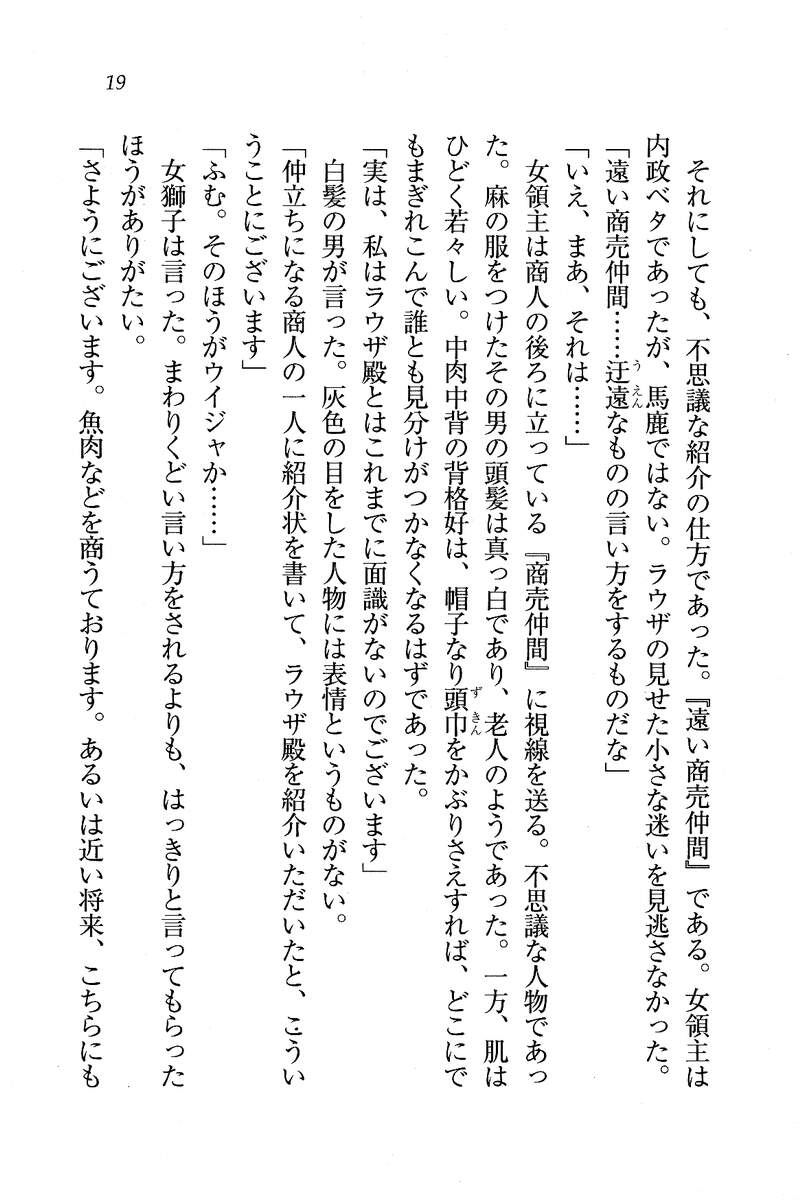 19
それにしても、不思議な紹介の仕方であった。『遠い商売仲間』である。女領主は
内政ベタであったが、馬鹿ではない。ラウザの見せた小さな迷いを見逃さなかった。
「遠い商売仲間……迂遠なものの言い方をするものだな」
「いえ、まあ、それは……」
女領主は商人の後ろに立っている『商売仲間』に視線を送る。不思議な人物であっ
た。麻の服をつけたその男の頭髪は真っ白であり、老人のようであった。一方、肌は
ひどく若々しい。中肉中背の背格好は、帽子なり頭巾をかぶりさえすれば、どこにで
もまぎれこんで誰とも見分けがつかなくなるはずであった。
「実は、私はラウザ殿とはこれまでに面識がないのでございます」
白髪の男が言った。灰色の目をした人物には表情というものがない。
「仲立ちになる商人の一人に紹介状を書いて、ラウザ殿を紹介いただいたと、こうい
うことにございます」
「ふむ。そのほうがウイジャか……」
女獅子は言った。まわりくどい言い方をされるよりも、はっきりと言ってもらった
ほうがありがたい。
「さようにございます。魚肉などを商うております。あるいは近い将来、こちらにも